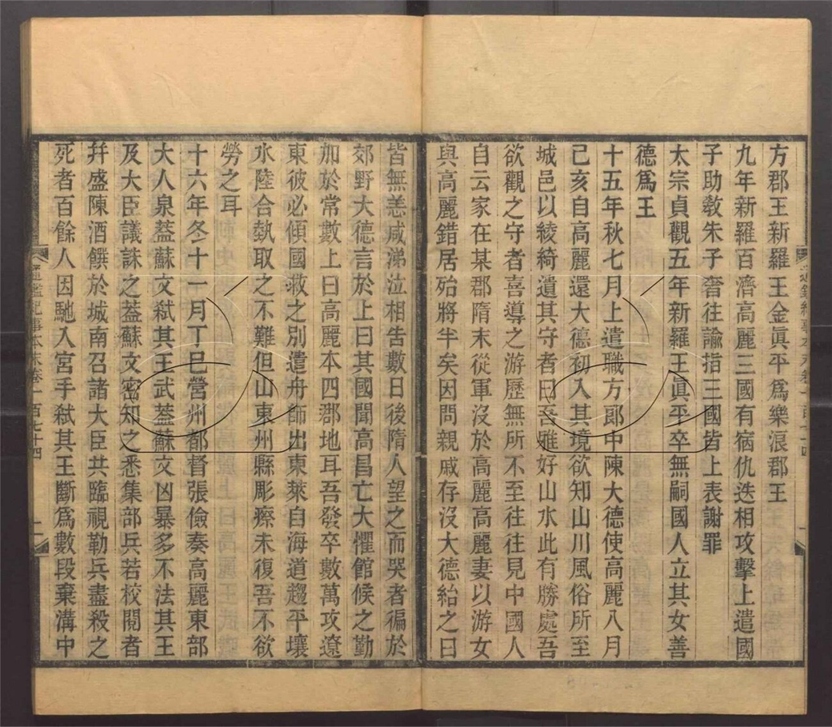 方郡王新羅王金眞平爲樂浪郡王
九年新羅百濟高麗三國有宿仇迭相攻擊上遣國
子助敎朱子奢往諭指三國皆上表謝罪
太宗貞觀五年新羅王眞平卒無嗣國人立其女善
德爲王
十五年秋七月上遣職方郎中陳大德使高麗八月
己亥自高麗還大德初入其境欲知山川風俗所至
城邑以綾綺遺其守者曰吾雅好山水此有勝處吾
欲觀之守者喜導之游歷無所不至往往見中國人
自云家在某郡隋末從軍沒於高麗高麗妻以游女
與高麗錯居殆將半矣因問親戚存沒大德紿之曰
皆無恙咸涕泣相告數日後隋人望之而哭者徧於
郊野大德言於上曰其國聞高昌亡大懼館候之勤
加於常數上曰高麗本四郡地耳吾發卒數萬攻遼
東彼必傾國救之別遣舟師出東萊自海道趨平壤
水陸合埶取之不難但山東州縣彫瘵未復吾不欲
勞之耳
十六年冬十一月丁巳營州都督張儉奏高麗東部
大人泉蓋蘇文弑其王武蓋蘇文凶暴多不法其王
及大臣議誅之蓋蘇文密知之悉集部兵若校閱者
幷盛陳酒饌於城南召諸大臣共臨視勒兵盡殺之
死者百餘人因馳入宮手弑其王斷爲數段棄溝中
通鑑紀事本末卷一百七十四